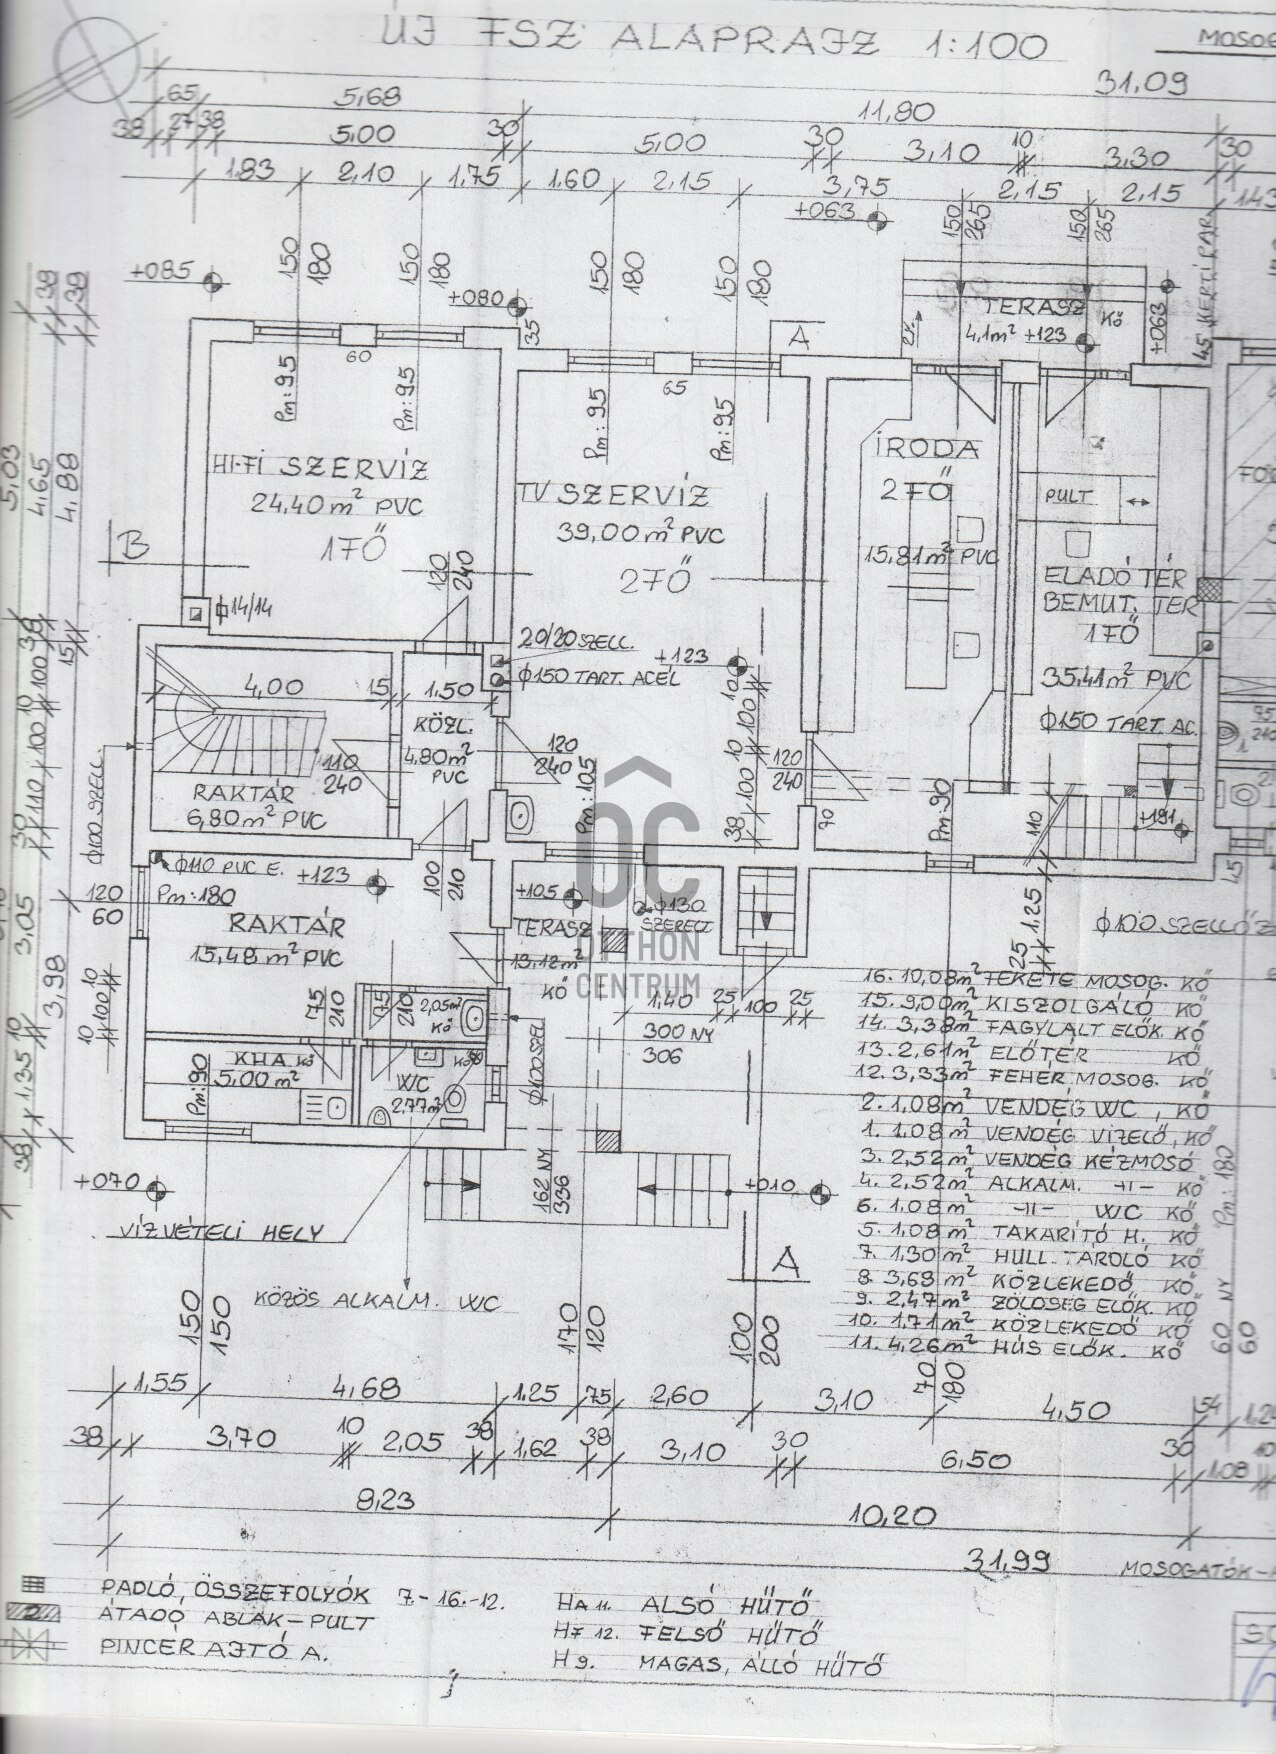 ÚJ FSZ ALAPRAJZ 1:100
31,09
65 5,68 11,80
38 27 38 5,00 30 5,00 30 3,10 10 3,30 30
1,83 2,10 1,75 1,60 2,15 3,75 2,15 2,15 1,43
+063
150 265
150 265
+085
150 180
150 180
+080
150 180
150 180
35
A
TERASZ KŐ
4,1m² +123
+063
45 KERTI PAR.
60
65
Pm:95
Pm:95
Pm:95
Pm:95
HI-FI SZERVÍZ
24,40m² PVC
1FŐ
TV SZERVÍZ
39,00m² PVC
2FŐ
IRODA
2FŐ
15,81m² PVC
PULT
ELADÓ TÉR
BEMUT. TER
1FŐ
35,41m² PVC
Φ150 TART. AC.
B
120 240
14/14
20/20 SZELL.
Φ150 TART. ACÉL
+123
5,03
4,65
4,88
38
39
4,00 15 1,50
KÖZL.
4,80m²
PVC
110
240
RAKTÁR
6,80m² PVC
120
240
120
240
Pm:105
Pm:90
70
110
+191
Φ100 SZELL.
Φ110 PVC E.
+123
100 210
120
60
Pm:180
RAKTÁR
15,48m² PVC
+105
TERASZ
13,12m²
KŐ
Φ130
SZERELT
OC
OTTHON
CENTRUM
25 1,25
Φ100 SZELLŐZ
3,05
3,98
75 210
2,05m²
KŐ
1,40 25 100 25
300 NY
306
KHA KŐ
5,00m²
Pm:90
WC
2,77m²
KŐ
Φ100 SZEL
162 NY
336
+070
+010
VÍZVÉTELI HELY
KÖZÖS ALKALM. WC
A
16. 10,08m² FEKETE MOSOG. KŐ
15. 9,00m² KISZOLGÁLÓ KŐ
14. 3,38m² FAGYLALT ELŐK. KŐ
13. 2,61m² ELŐTÉR KŐ
12. 3,33m² FEHÉR MOSOG. KŐ
2. 1,08m² VENDÉG WC, KŐ
1. 1,08m² VENDÉG VIZELŐ, KŐ
3. 2,52m² VENDÉG KÉZMOSÓ
4. 2,52m² ALKALM. -II- KŐ
6. 1,08m² -II- WC KŐ
5. 1,08m² TAKARÍTÓ H. KŐ
7. 1,30m² HULL. TÁROLÓ KŐ
8. 3,68m² KÖZLEKEDŐ KŐ
9. 2,47m² ZÖLDSÉG ELŐK. KŐ
10. 1,71m² KÖZLEKEDŐ KŐ
11. 4,26m² HÚS ELŐK. KŐ
Pm:180
60 NY
60
150 150
170 120
100 200
70 180
1,55 4,68 1,25 75 2,60 3,10 4,50 54
38 3,70 10 2,05 38 1,62 38 3,10 30 6,50 30 1,08
8,23 10,20
31,99
PADLÓ, ÖSSZEFOLYÓK 7-16.-12.
ÁTADÓ ABLAK-PULT
PINCER AJTÓ A.
HA 11. ALSÓ HŰTŐ
HF 12. FELSŐ HŰTŐ
H 9. MAGAS, ÁLLÓ HŰTŐ